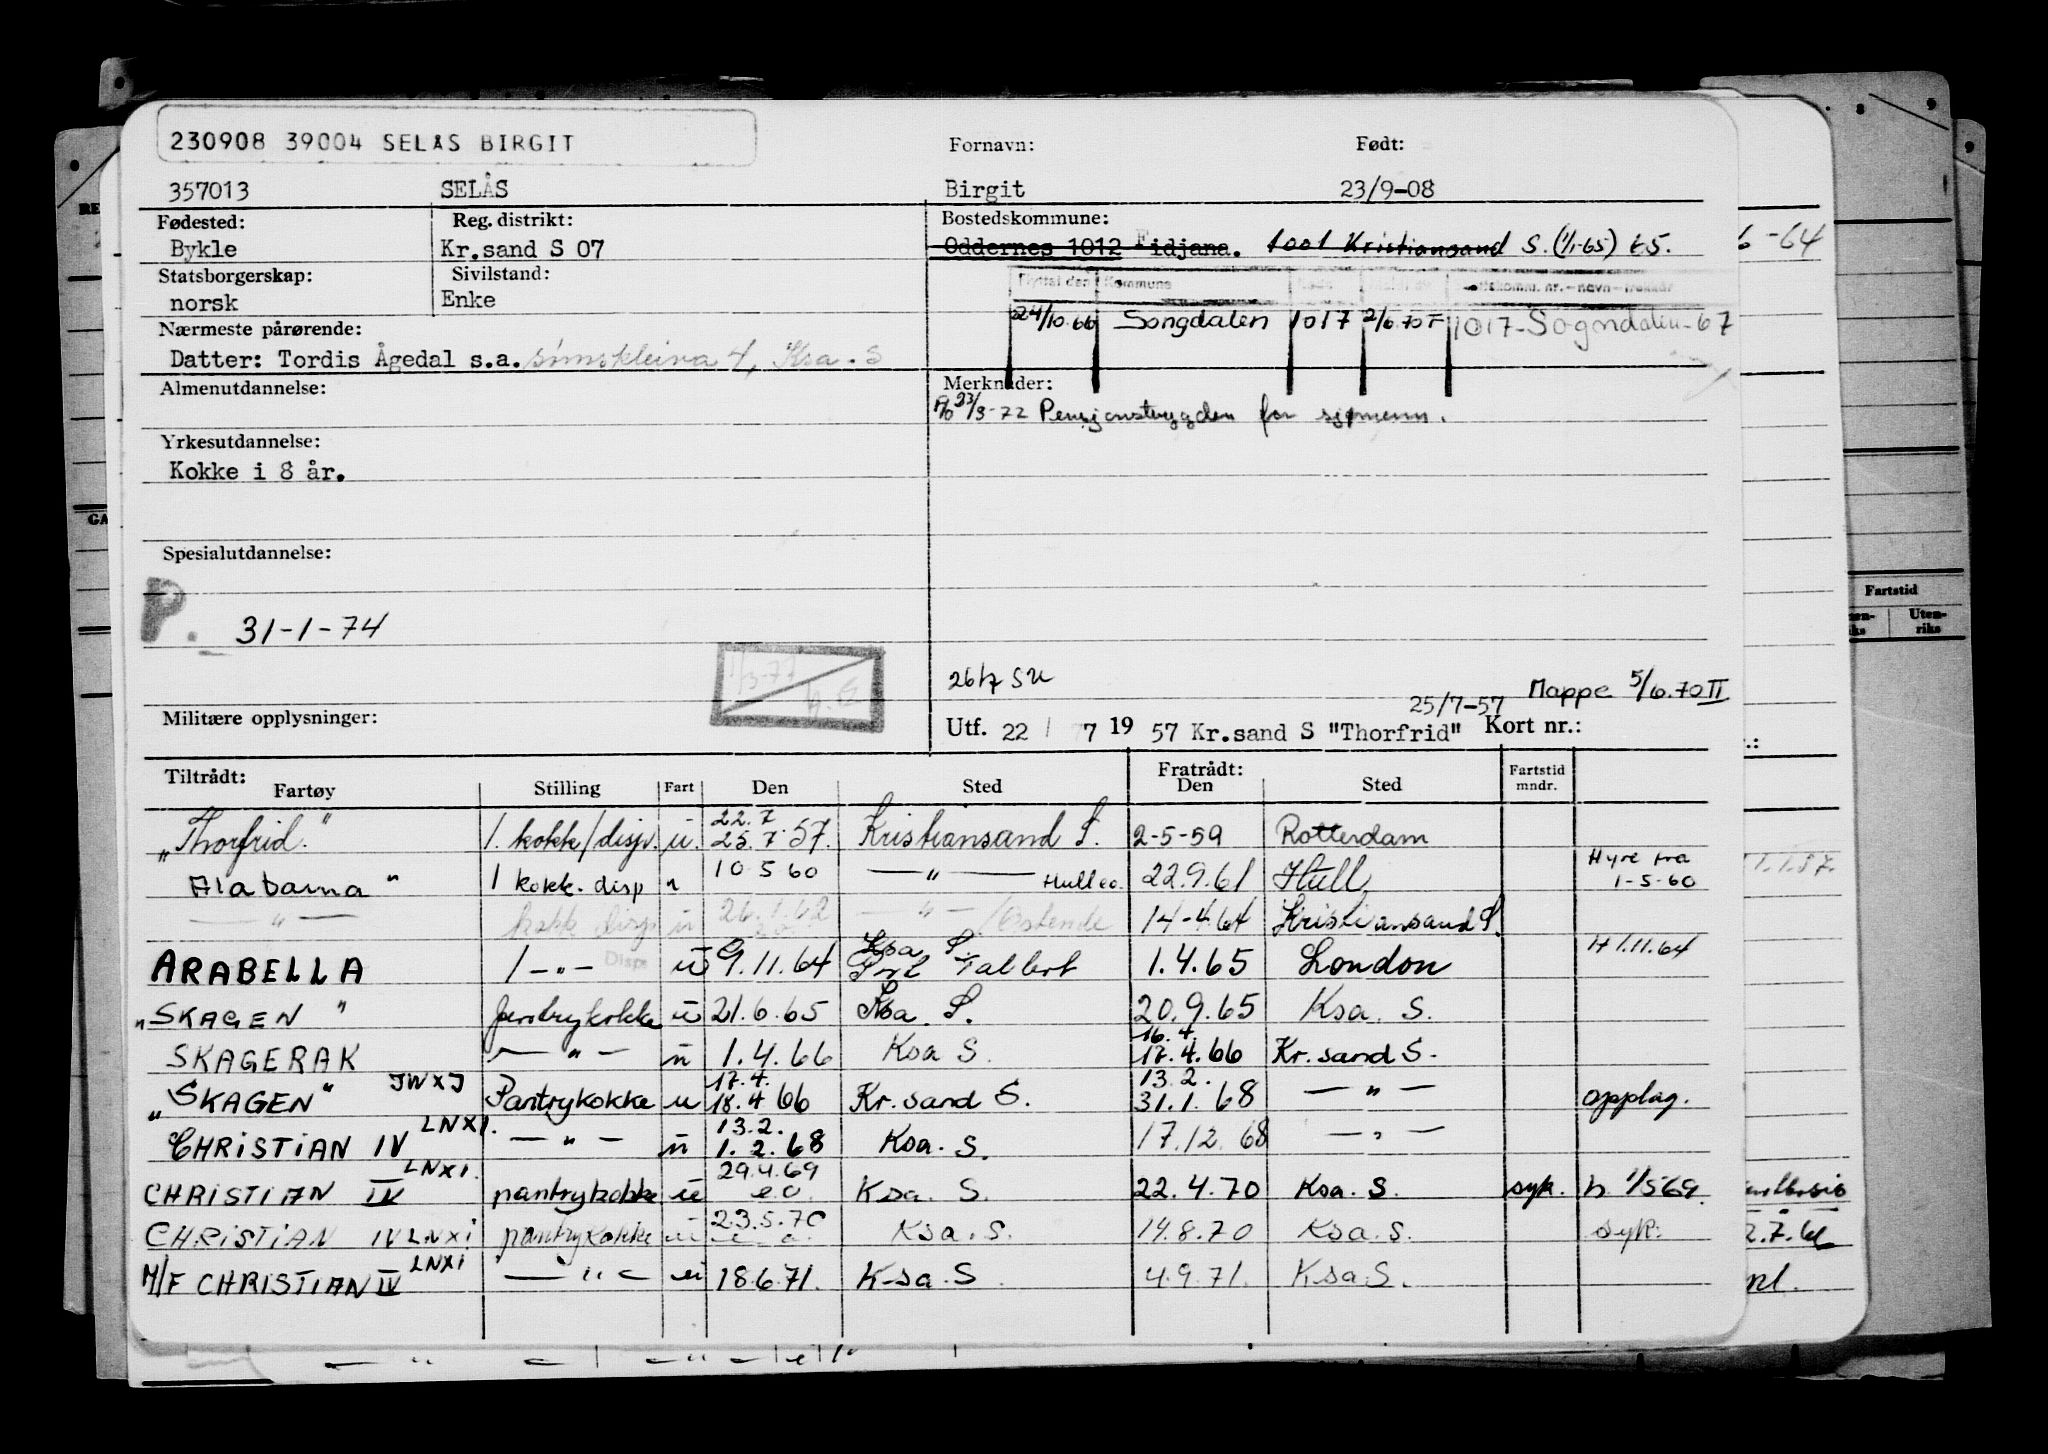 230908 39004 SELÅS BIRGIT
Fornavn: Født:
357013 SELÅS Birgit 23/9-08
Fødested: Reg. distrikt: Bostedskommune:
Bykle Kr.sand S 07 Oddernes 1012 Fidjane. 1001 Kristiansand S. (1/1-65) ts.
Statsborgerskap: Sivilstand:
norsk Enke
Flyttet den Kommune
24/10.66 Songdalen 1017 2/6.70 F 1017-Sogndalen-67
Nærmeste pårørende:
Datter: Tordis Ågedal s.a. 4, Ksa. S
Almenutdannelse: Merknader:
23/3-72 Pensjonstrygden for sjømenn.
Yrkesutdannelse:
Kokke i 8 år.
Spesialutdannelse:
P. 31-1-74
1/3-77
26/7 SU
25/7-57 Mappe 5/6.70 II
Militære opplysninger: Utf. 22 / 7 19 57 Kr.sand S "Thorfrid" Kort nr.:
Tiltrådt: Fratrådt: Fartstid
Fartøy Stilling Fart Den Sted Den Sted mndr.
22.7
"Thorfrid." 1. kokk/disp. u. 25.7.57. Kristiansand S. 2-5-59 Rotterdam
Alabama " 1 kokk. disp u 10 5 60 — " — Hull eo. 22.9.61 Hull, Hyre fra 1-5-60
— " — kokk disp u 26.1.62 — " — /Ostende 14-4.64 Kristiansand S.
ARABELLA 1 — " — Disp u 9.11.64 Ksa S. 1.4.65 London H 1.11.64
"SKAGEN " u 21.6.65 Ksa. S. 20.9.65 Ksa. S.
16.4.
SKAGERAK — " — u 1.4.66 Ksa S. 17.4.66 Kr.sand S.
17.4. 13.2.
"SKAGEN" JWXJ Pantrykokke u 18.4 66 Kr.sand S. 31.1.68 — " — opplag.
13.2.
CHRISTIAN IV LNXI. — " — u 1.2.68 Ksa. S. 17.12.68 — " —
29.4.69
CHRISTIAN IV LNXI. pantrykokke u eo. Ksa. S. 22.4.70 Ksa. S. syk. h 1/5 69.
23.5.70
CHRISTIAN IV LNXI pantrykokke u Ksa. S. 19.8.70 Ksa. S. syk.
M/F CHRISTIAN IV LNXI — " — u 18.6.71. Ksa. S 4.9.71. Ksa S.
-64
Fartstid
Uten-
riks
1.1.57.
2.7.66